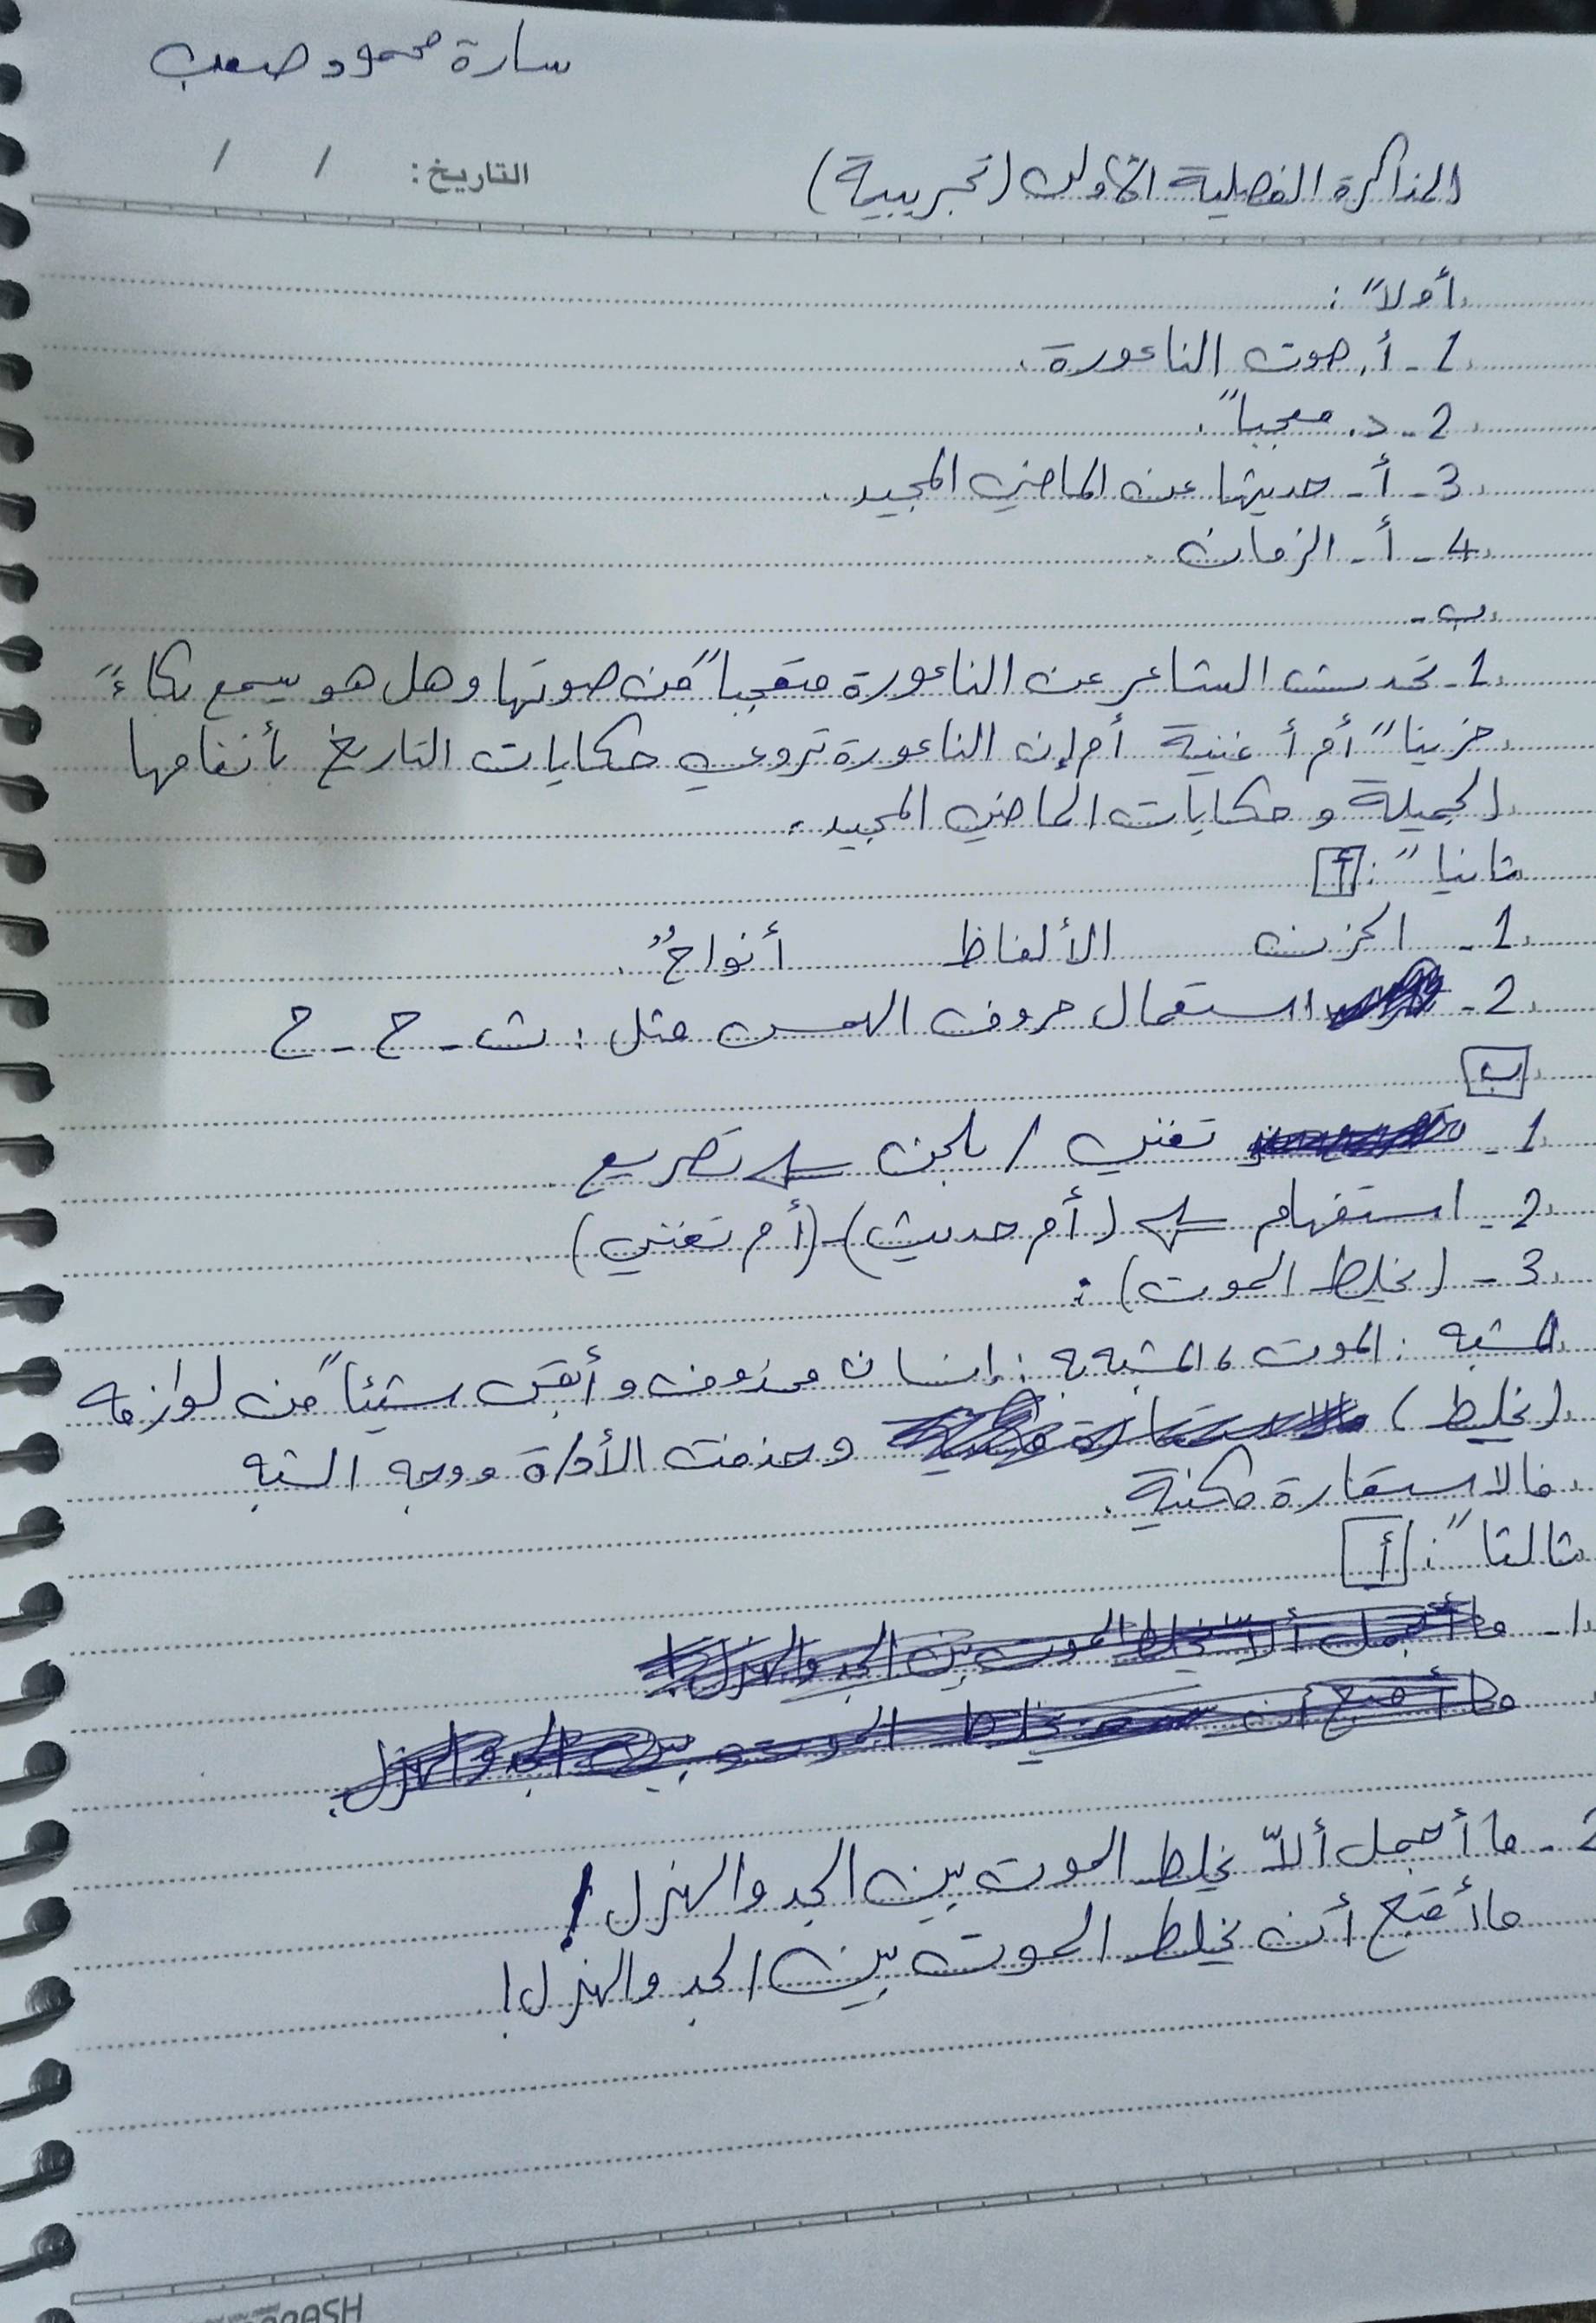 سارة محمود صعب
التاريخ: / /
المذاكرة الفصلية الأولى (تجريبية)
أولاً:
1- أ. صوت الناعورة.
2- د. معجباً.
3- أ- حديثها عن الماضي المجيد.
4- أ- الزمان.
ب-
1- تحدث الشاعر عن الناعورة متعجباً من صوتها وهل هو يسمع بكاءً
حزيناً أم أغنية أم إن الناعورة تروي حكايات التاريخ بأنغامها
الجميلة و حكايات الماضي المجيد.
ثانياً: أ
1- الحزن الألفاظ أنواحٌ.
2- استعمال حروف الهمس مثل: ث - ح - ح
ب
1- تغني / بلحن تصريع
2- استفهام (أم حديث) - (أم تغني).
3- (يخلط الموت):
المشبه: الموت، المشبه به: إنسان محذوف وأبقى شيئاً من لوازمه
(يخلط) وحذفت الأداة ووجه الشبه
فالاستعارة مكنية.
ثالثاً: أ
1- ما أجمل ألّا يخلط الموت بين الجد والهزل!
ما أقبح أن يخلط الموت بين الجد والهزل.
2- ما أجمل ألّا يخلط الموت بين الجد والهزل!
ما أقبح أن يخلط الموت بين الجد والهزل!